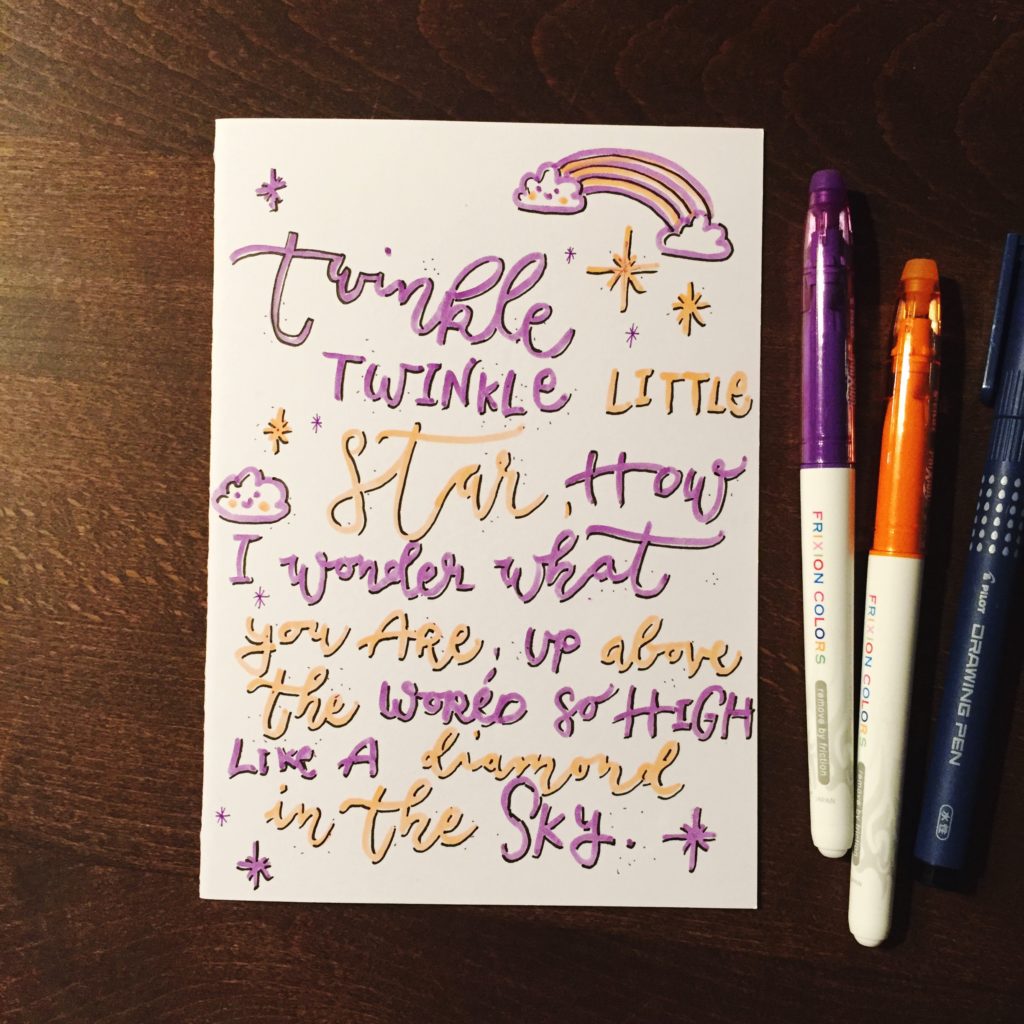 twinkle
TWINKLE LITTLE
Star, How
I wonder what
you ARe, UP above
the WORlD so HIGH
LIKe A diamond
in the Sky.
FRIXION COLORS
remove by friction
JAPAN
FRIXION COLORS
remove by friction
PILOT DRAWING PEN
水性